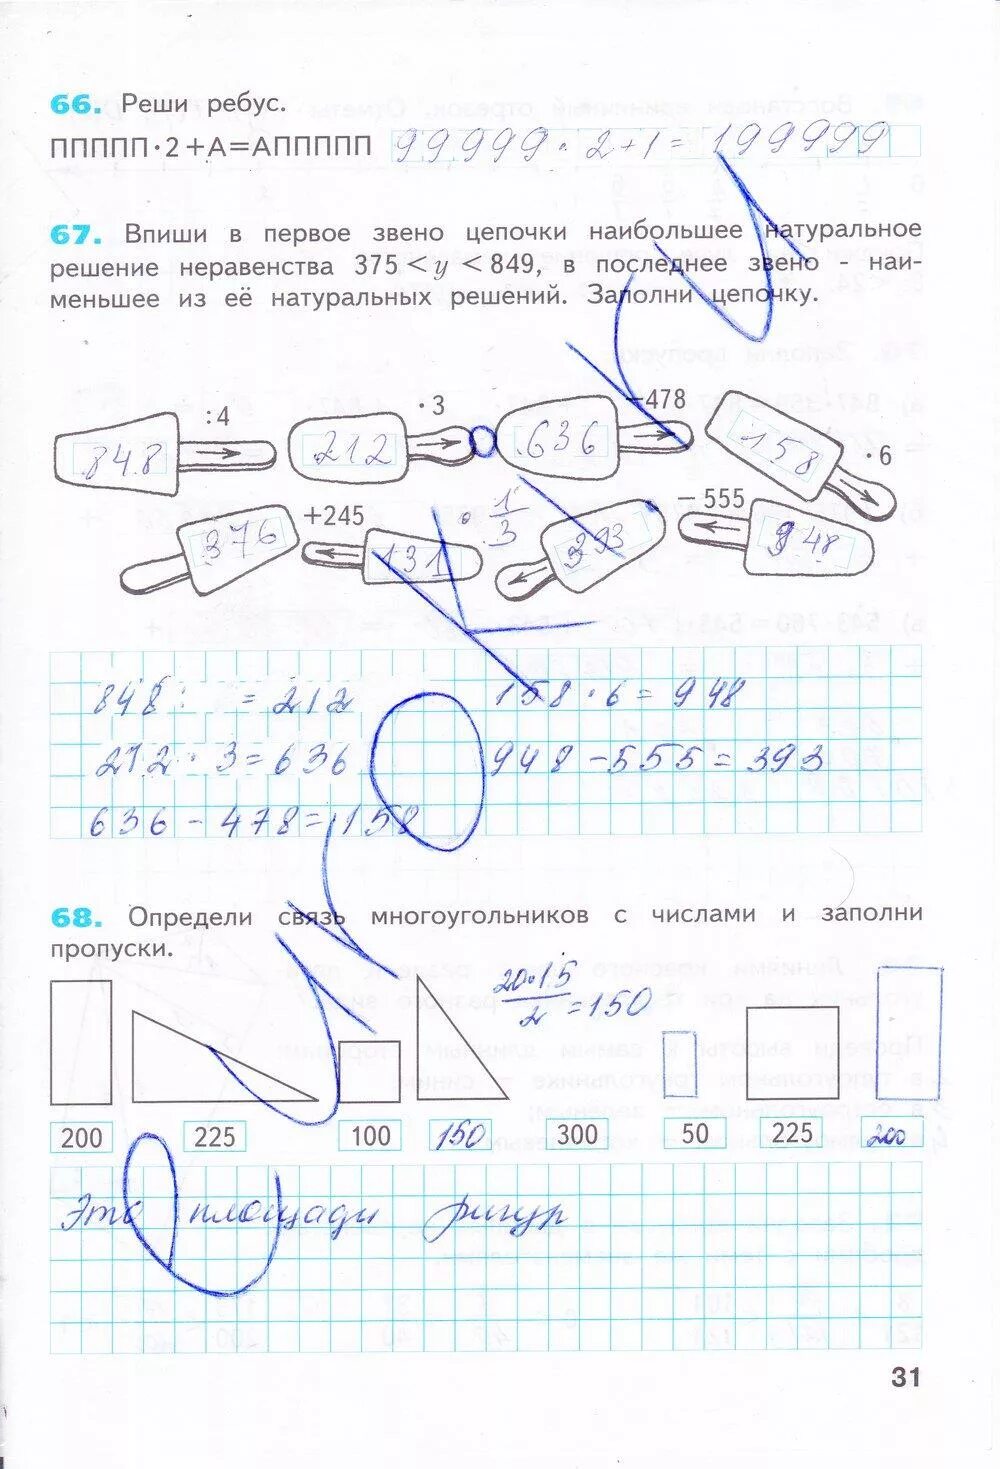 66. Реши ребус.
ППППП·2+А=АППППП 99999·2+1=199999
67. Впиши в первое звено цепочки наибольшее натуральное
решение неравенства 375<y<849, в последнее звено - наи-
меньшее из её натуральных решений. Заполни цепочку.
:4 ·3 -478
848 212 636 158 ·6
+245 ·1/3 -555
376 131 393 948
848: =212 158·6=948
212·3=636 948-555=393
636-478=158
68. Определи связь многоугольников с числами и заполни
пропуски.
20·15/2=150
200 225 100 150 300 50 225 200
Это площади фигур
31